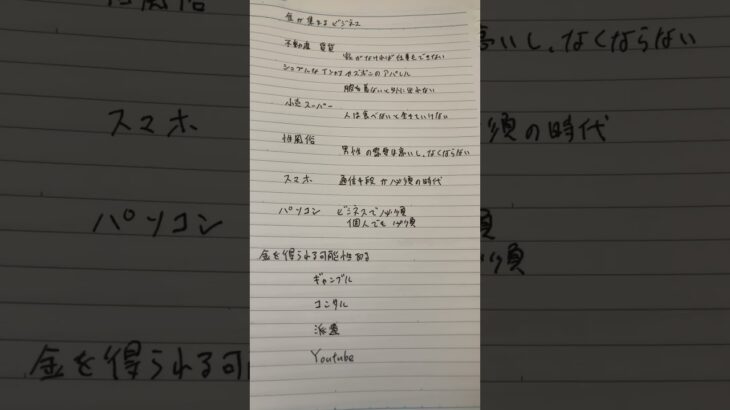 金が集まるビジネス
不動産 賃貸
家がなければ仕事もできない
シンプルなTシャツやズボンのアパレル
服を着ないと外に出れない
小売スーパー
人は食べないと生きていけない
性風俗
男性の需要は高いし、なくならない
スマホ 通信手段が必須の時代
パソコン ビジネスで必須
個人でも必須
金を得られる可能性ある
ギャンブル
コンサル
派遣
Youtube